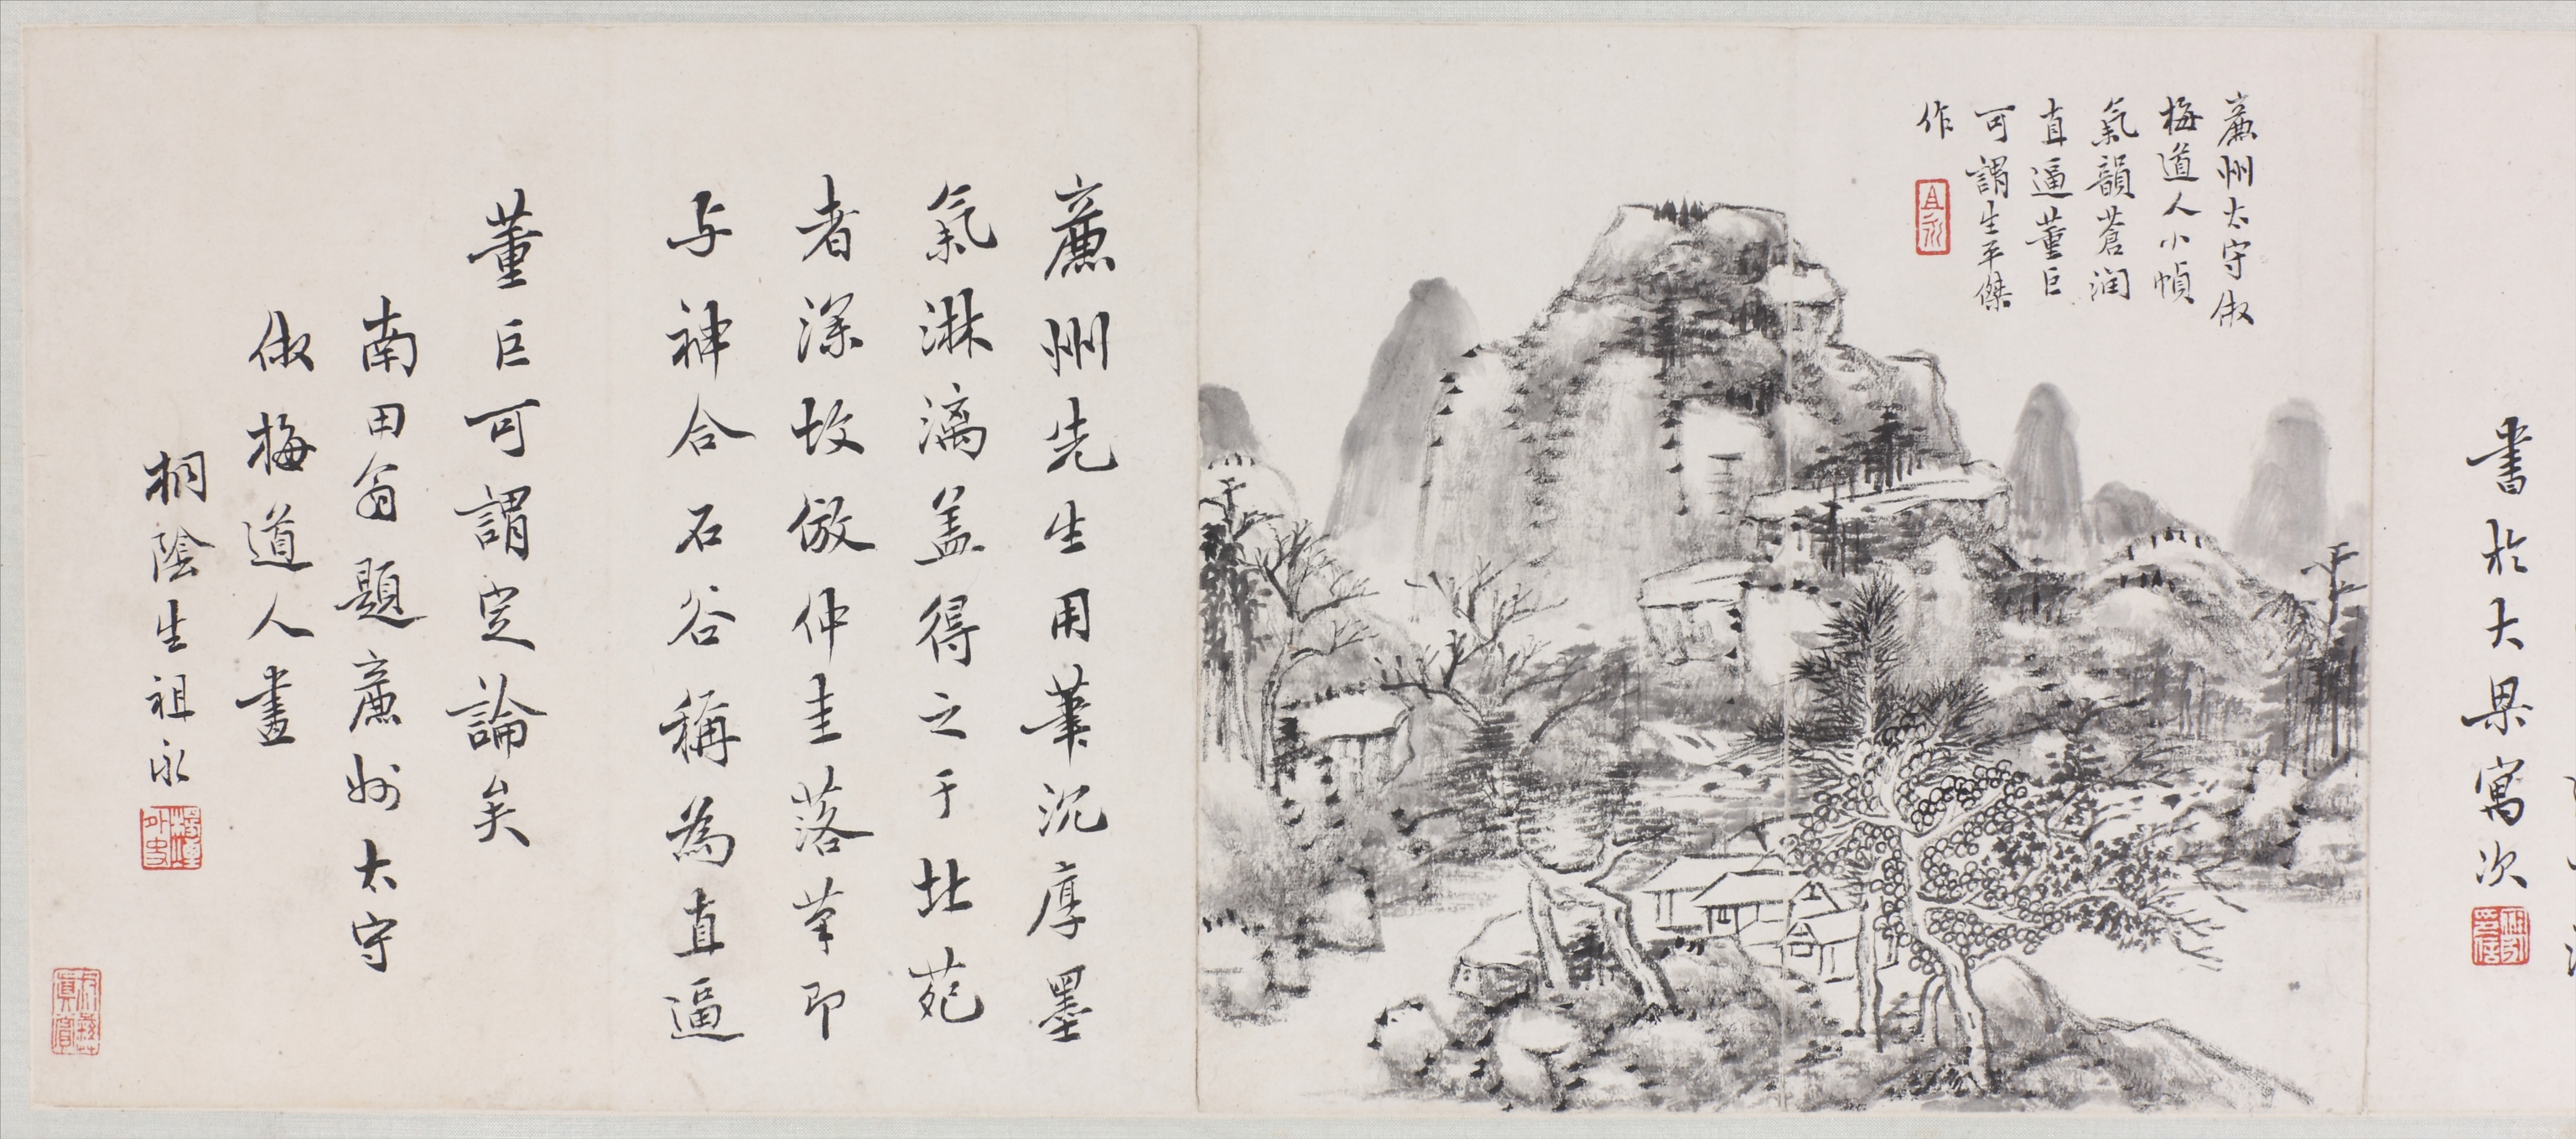 書於大梁寓次
廉州太守倣
梅道人小幀
氣韻蒼潤
直逼董巨
可謂生平傑
作
廉州先生用筆沉厚墨
氣淋漓盖得之于北苑
者深故倣仲圭落筆即
与神合石谷稱為直逼
董巨可謂定論矣
南田翁題廉州太守
倣梅道人畫
桐陰生祖永